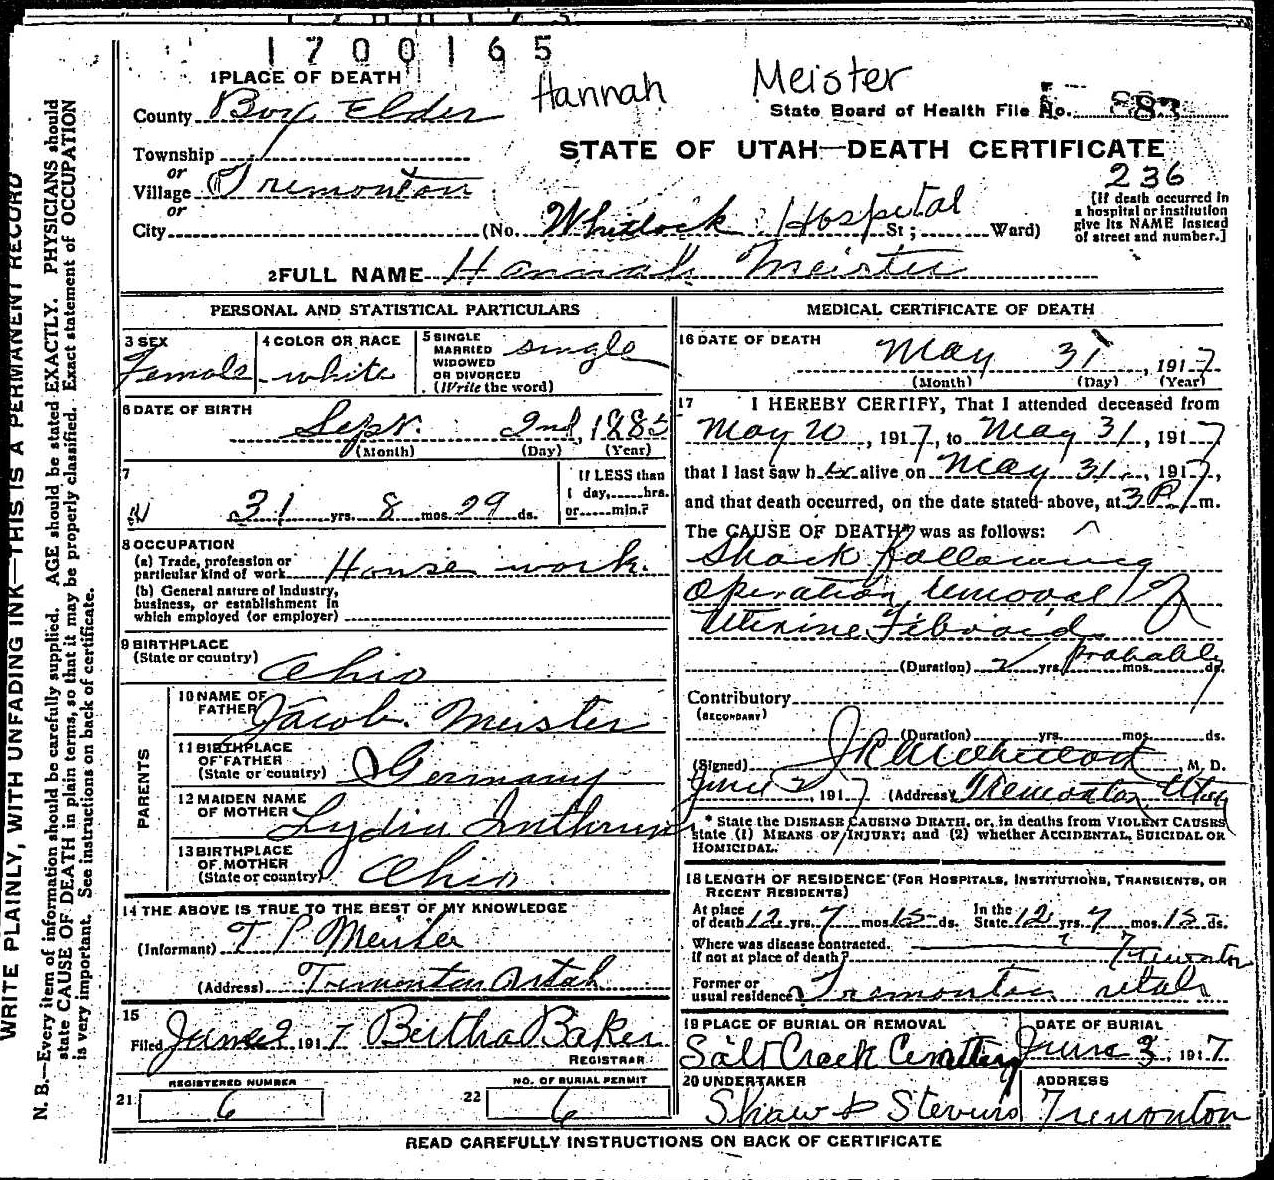 1700165
Hannah Meister
1 PLACE OF DEATH
County Box Elder
State Board of Health File No. 83
Township
or
Village Tremonton
or
City
STATE OF UTAH—DEATH CERTIFICATE
236
(No. Whitlock Hospital St; Ward)
[If death occurred in
a hospital or institution
give its NAME instead
of street and number.]
2 FULL NAME Hannah Meister
PERSONAL AND STATISTICAL PARTICULARS
3 SEX
Female
4 COLOR OR RACE
white
5 SINGLE
MARRIED
WIDOWED
OR DIVORCED
(Write the word)
single
6 DATE OF BIRTH
Sept. 2nd, 1885
(Month) (Day) (Year)
7
31 yrs. 8 mos. 29 ds.
If LESS than
1 day, hrs.
or min.?
8 OCCUPATION
(a) Trade, profession or
particular kind of work House work.
(b) General nature of industry,
business, or establishment in
which employed (or employer)
9 BIRTHPLACE
(State or country) Ohio
PARENTS
10 NAME OF
FATHER Jacob Meister
11 BIRTHPLACE
OF FATHER
(State or country) Germany
12 MAIDEN NAME
OF MOTHER Lydia
13 BIRTHPLACE
OF MOTHER
(State or country) Ohio
14 THE ABOVE IS TRUE TO THE BEST OF MY KNOWLEDGE
(Informant) T P Meister
(Address) Tremonton Utah
15
Filed June 2 1917 Bertha Baker
REGISTRAR
21 REGISTERED NUMBER
6
22 NO. OF BURIAL PERMIT
6
MEDICAL CERTIFICATE OF DEATH
16 DATE OF DEATH
May 31, 1917
(Month) (Day) (Year)
17 I HEREBY CERTIFY, That I attended deceased from
May 20, 1917, to May 31, 1917
that I last saw her alive on May 31, 1917,
and that death occurred, on the date stated above, at 3 P m.
The CAUSE OF DEATH* was as follows:
Shock following
Operation removal of
Uterine Fibroid
(Duration) 2 yrs. probably mos. ds.
Contributory
(SECONDARY)
(Duration) yrs. mos. ds.
(Signed) M. D.
June 2, 1917 (Address) Tremonton Utah
* State the DISEASE CAUSING DEATH, or, in deaths from VIOLENT CAUSES
state (1) MEANS OF INJURY; and (2) whether ACCIDENTAL, SUICIDAL OR
HOMICIDAL.
18 LENGTH OF RESIDENCE (FOR HOSPITALS, INSTITUTIONS, TRANSIENTS, OR
RECENT RESIDENTS)
At place
of death 12 yrs. 7 mos. 15 ds. In the
State 12 yrs. 7 mos. 15 ds.
Where was disease contracted.
If not at place of death? Tremonton
Former or
usual residence Tremonton Utah
19 PLACE OF BURIAL OR REMOVAL
Salt Creek Cemetery
DATE OF BURIAL
June 3, 1917
20 UNDERTAKER
Shaw & Stevens
ADDRESS
Tremonton
READ CAREFULLY INSTRUCTIONS ON BACK OF CERTIFICATE
WRITE PLAINLY, WITH UNFADING INK—THIS IS A PERMANENT RECORD
N. B.—Every item of information should be carefully supplied. AGE should be stated EXACTLY. PHYSICIANS should
state CAUSE OF DEATH in plain terms, so that it may be properly classified. Exact statement of OCCUPATION
is very important. See instructions on back of certificate.